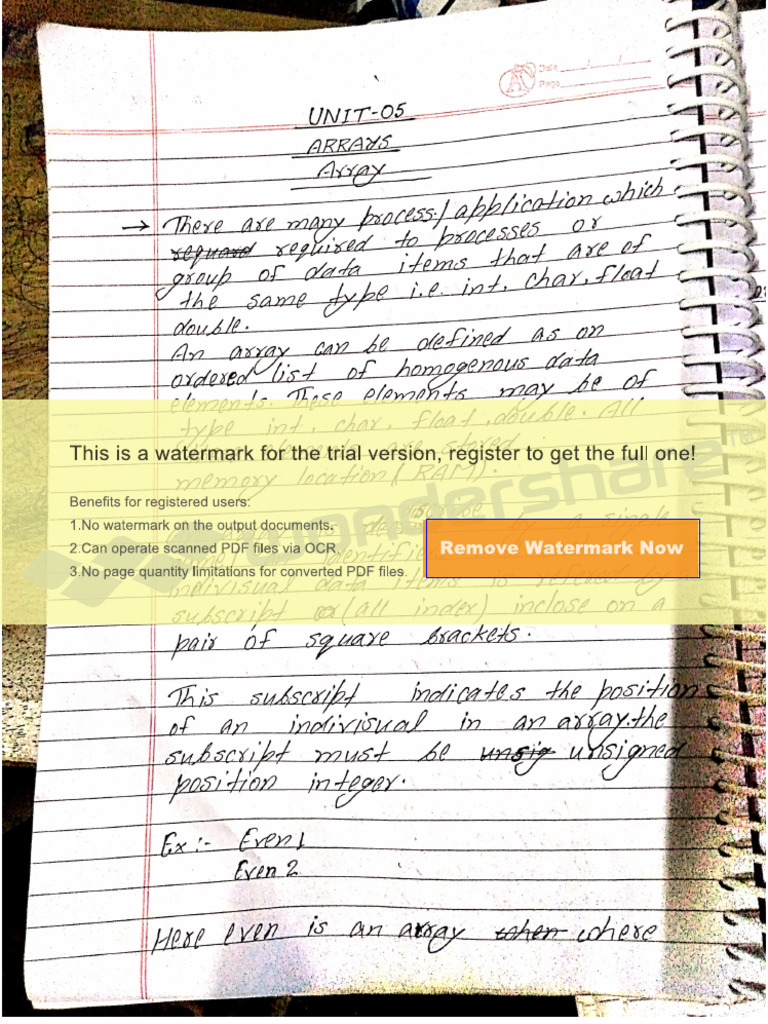 Date ___/___/___
Page ___
UNIT-05
ARRAYS
Array
→ There are many process/application which
requard required to processes or
group of data items that are of
the same type i.e. int, char, float
double.
An array can be defined as on
ordered list of homogenous data
elements. These elements may be of
type int, char, float, double. All
This is a watermark for the trial version, register to get the full one!
are stored
memory location (RAM).
wondershare™
Benefits for registered users:
1.No watermark on the output documents.
2.Can operate scanned PDF files via OCR.
3.No page quantity limitations for converted PDF files.
Remove Watermark Now
by a single
indivisual data items is refered by
subscript or (all index) inclose on a
pair of square brackets.
This subscript indicates the position
of an indivisual in an array.the
subscript must be unsig unsigned
position integer.
Ex :- Even 1
Even 2
Here even is an array when where